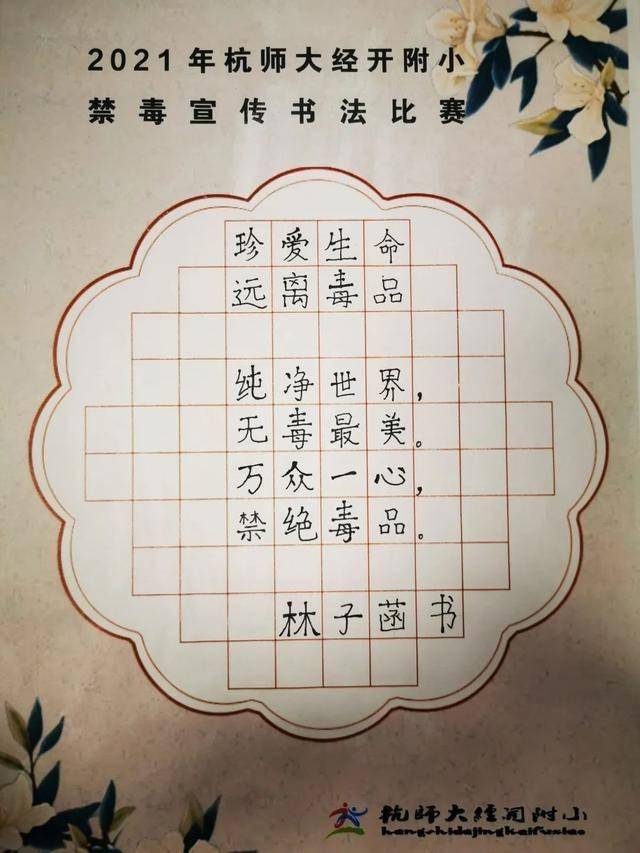 2021年杭师大经开附小
禁毒宣传书法比赛
珍爱生命
远离毒品
纯净世界,
无毒最美。
万众一心,
禁绝毒品。
林子菡书
杭师大经开附小
hangshidajingkaifuxiao